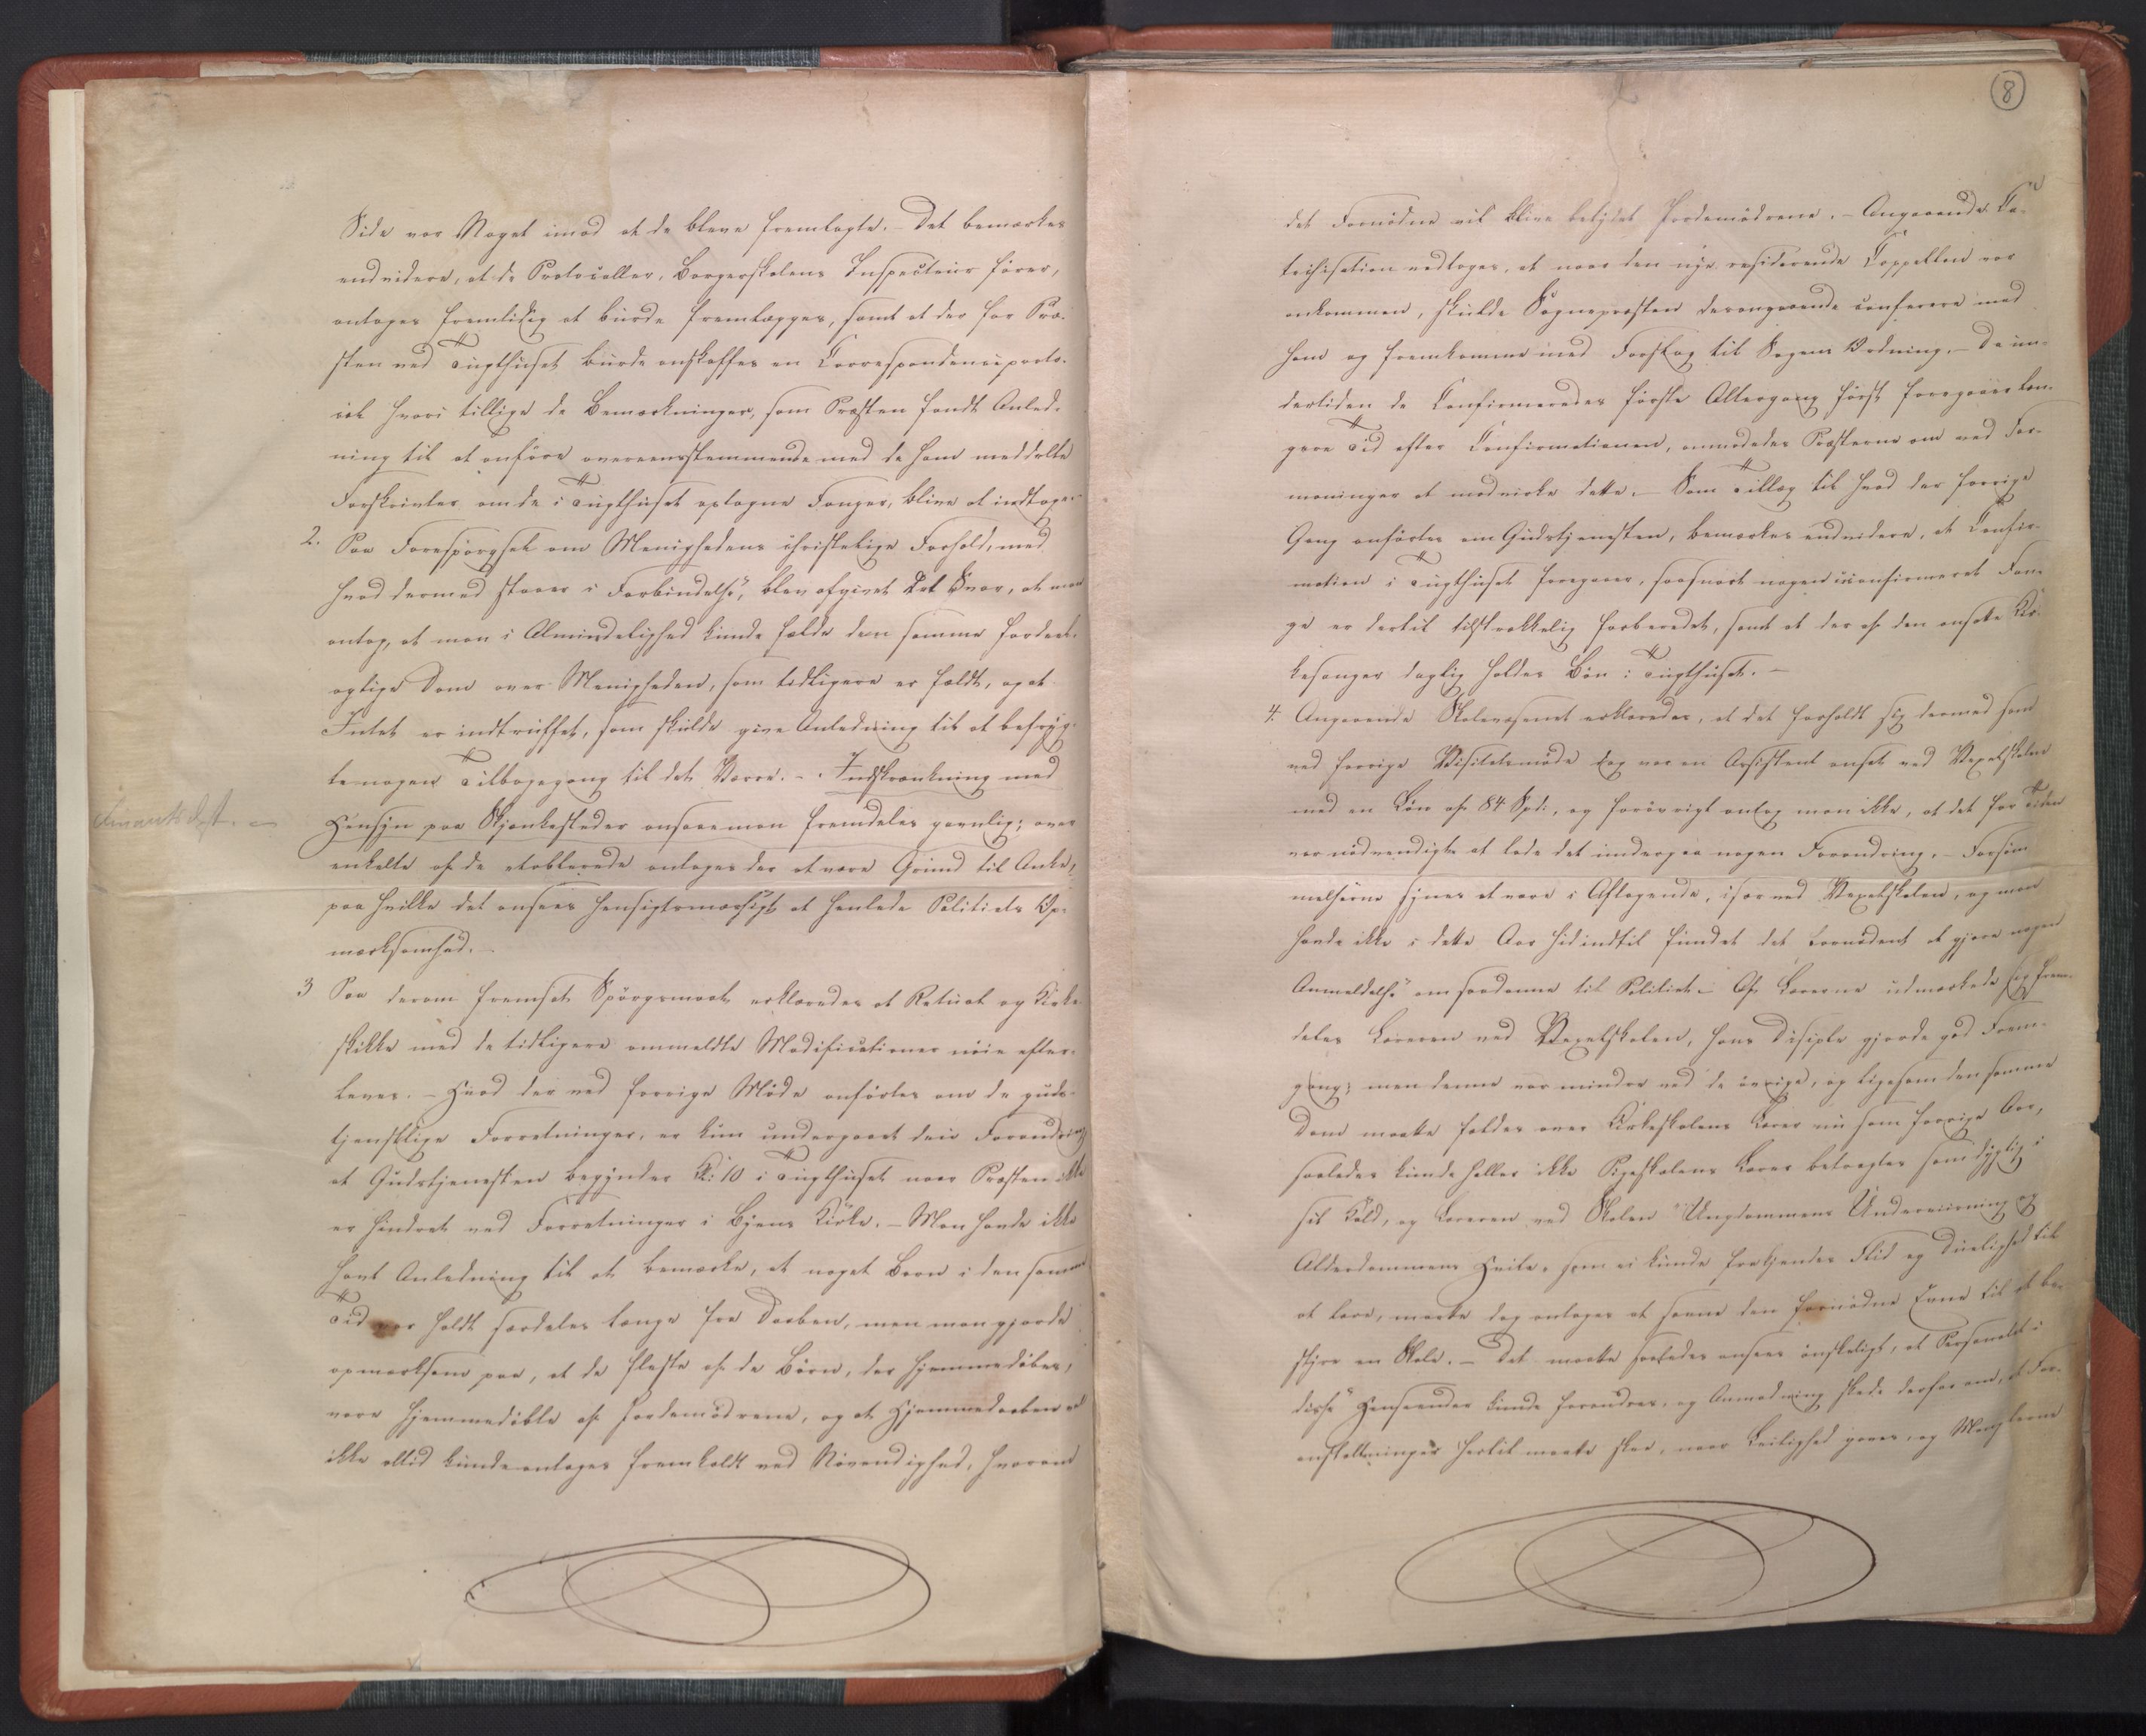 Side var Noget imod at de bleve fremlagte. – Det bemærkes
endvidere, at de Protocoller, Borgerskolens Inspecteur fører,
antages fremtidig at burde fremlægges, samt at der for Præ-
sten ved Tugthuset burde anskaffes en Correspondenceproto-
col hvori tillige de Bemærkninger, som Præsten fandt Anled-
ning til at anføre overeensstemmende med de ham meddelte
Forskrivter om de i Tugthuset optagne Fanger, blive at indtage.
2. Paa Forespørgsel om Menighedens christelige Forhold, med
hvad dermed staaer i Forbindelse, blev afgivet Det Svar, at man
antog, at man i Almindelighed kunde fælde den samme fordeel-
agtige Dom over Menigheden, som tidligere er fældt, og at
Intet er indtruffet, som skulde give Anledning til at befryg-
te nogen Tilbagegang til det Værre. – Indskrænkning med
Hensyn paa Skjænkesteder ansaae man fremdeles gavnlig; over
enkelte af de etablerede antages der at være Grund til Anke,
paa hvilke det ansees hensigtsmæssigt at henlede Politiets Op-
mærksomhed. –
3 Paa derom fremsat Spørgsmaal erklæredes at Ritual og Kirke
skikke med de tidligere anmeldte Modificationer nøie efter-
leves. – Hvad der ved forrige Møde anførtes om de guds-
tjenstlige Forretninger, er kun undergaaet den Forandring
at Gudstjenesten begynder Kl: 10 i Tugthuset naar Præsten ikke
er hindret ved Forretninger i Byens Kirke. – Man havde ikke
havt Anledning til at bemærke, at noget Barn i den samme
Tid var holdt særdeles længe fra Daaben, men man gjorde
opmærksom paa, at de fleste af de Børn, der hjemmedøbes,
være hjemmedøbte af Jordemødrene, og at Hjemmedaaben
ikke altid kunde antages fremkaldt ved Nødvendighed, hvorom
8
det Fornødne vil blive betydet Jordemødrene. – Angaaende Ca-
techisation vedtoges, at naar den nye residerende Cappellan var
ankommen, skulde Sognepræsten derangaaende conferere med
ham og fremkomme med Forslag til Sagens Ordning. – Da im-
dertiden de Confirmeredes første Altergang først foregaaer læn-
gere Tid efter Confirmationen, anmodedes Præsterne om ved For-
maninger at modvirke dette. – Som Tillæg til hvad der forrige
Gang anførtes om Gudstjenesten, bemærkes endvidere, at Confir-
mation i Tugthuset foregaaer, saasnart nogen uconfirmeret Fan-
ge er dertil tilstrækkelig forberedet, samt at der af den ansatte Kir-
kesanger daglig holdes Bøn i Tugthuset. –
4. Angaaende Skolevæsenet erklæredes, at det forholdt sig dermed som
ved forrige Visitatsmøde dog var en Assistent ansat ved Vexelskolen
med en Løn af 84 Spd:, og forøvrigt antog man ikke, at det for Tiden
var nødvendigt at lade det undergaa nogen Forandring. – Forsøm
melserne synes at være i Aftagende, især ved Vexelskolen, og man
havde ikke i dette Aar hidindtil fundet det fornødent at gjøre nogen
Anmeldelse om saadanne til Politiet. – Af Lærerne udmærkede sig frem-
deles Læreren ved Vexelskolen, hans Disiple gjorde god Frem-
gang; men denne var mindre ved de øvrige, og ligesom den samme
Dom maatte fældes over Kirkeskolens Lærer nu som forrige Aar,
saaledes kunde heller ikke Pigeskolens Lærer betragtes som dygtig i
sit Kald, og Læreren ved Skolen "Ungdommens Underviisning og
Alderdommens Hvile", som ei kunde frakjendes Flid og Duelighed til
at lære, maatte dog antages at savne den fornødne Evne til at be-
styre en Skole. – Det maatte saaledes ansees ønskeligt, at Personalet i
disse Henseender kunde forandres, og Anmodning skede derfor om, at For-
anstaltninger hertil maatte skee, naar Leilighed gaves, og Manglerne